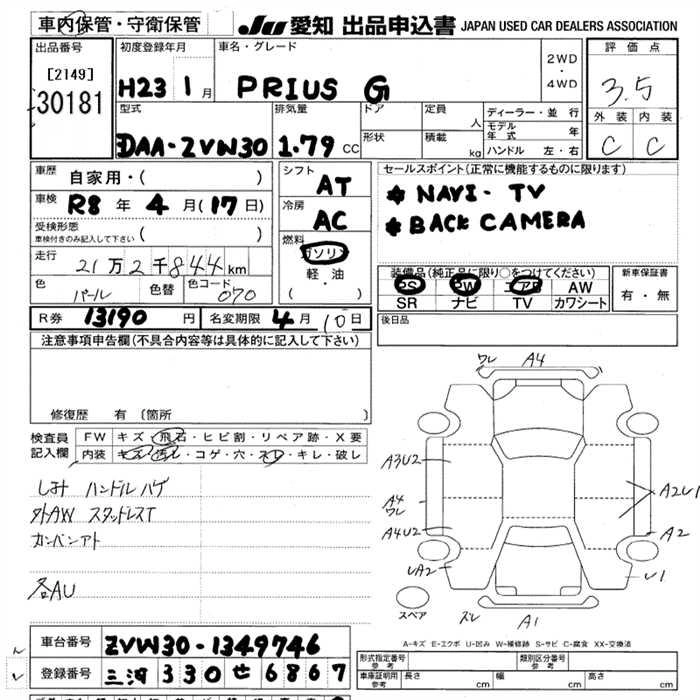 車内保管・守衛保管
JU 愛知 出品申込書 JAPAN USED CAR DEALERS ASSOCIATION
出品番号
[2149]
30181
初度登録年月
H23 1月
車名・グレード
PRIUS G
2WD
・
4WD
評価点
3.5
外装 内装
C C
型式
DAA-ZVW30
排気量
1.79 CC
ドア
形状
定員 人
積載 kg
ディーラー・並行
モデル年式 年
ハンドル 左・右
車歴 自家用・( )
車検 R8年 4月(17日)
受検形態
車検付きのみ記入して下さい ( )
走行 21万2千844km
色 パール 色替 色コード 070
シフト
AT
冷房
AC
燃料
ガソリン
軽・油
( ・ )
セールスポイント(正常に機能するものに限ります)
* NAVI・TV
* BACK CAMERA
装備品(純正品に限り○をつけてください)
PS PW エアB AW
SR ナビ TV カワシート
新車保証書
有・無
後日品
R券 13190円 名変期限 4月10日
注意事項申告欄(不具合内容等は具体的に記入して下さい)
修復歴 有〔箇所 〕
検査員
記入欄
FW キズ・飛石・ヒビ割・リペア跡・X要
内装 キズ・汚レ・コゲ・穴・スレ・キレ・破レ
しみ ハンドルハゲ
外AW スタッドレスT
カンバンアト
各AU
ワレ A4
A3U2
A4
ワレ
A4U2
UA2
A2U1
A2
U1
スペア
ズレ A1
A-キズ E-エクボ U-凹み W-補修跡 S-サビ C-腐食 XX-交換済
車台番号 ZVW30-1349746
登録番号 三河 330 せ 6867
形式指定番号
参考
類別区分番号
参考
車庫証明用
参考
長さ cm 幅 cm 高さ cm